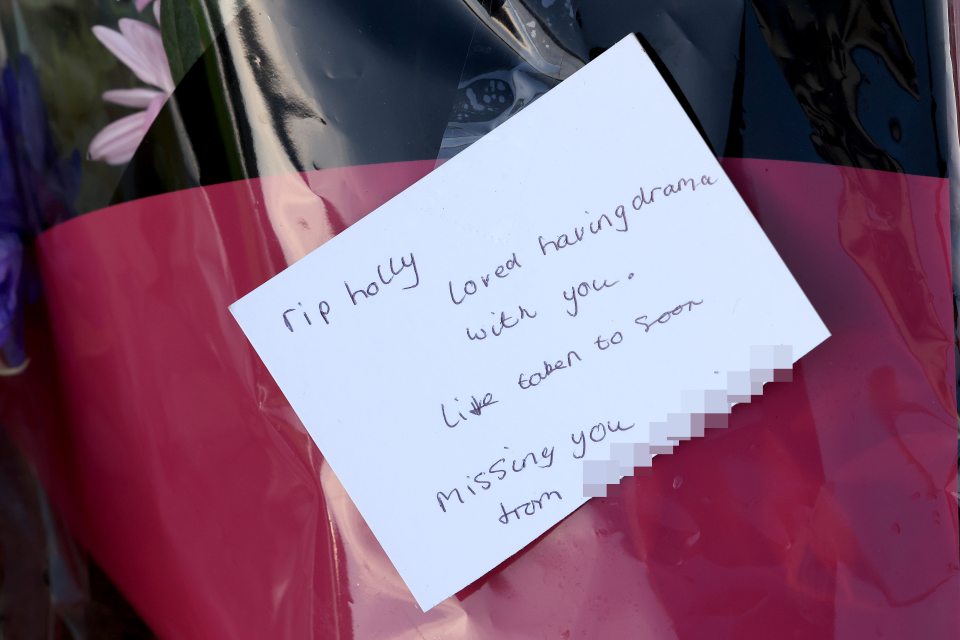 rip holly
loved having drama
with you.
like taken to soon
missing you
from